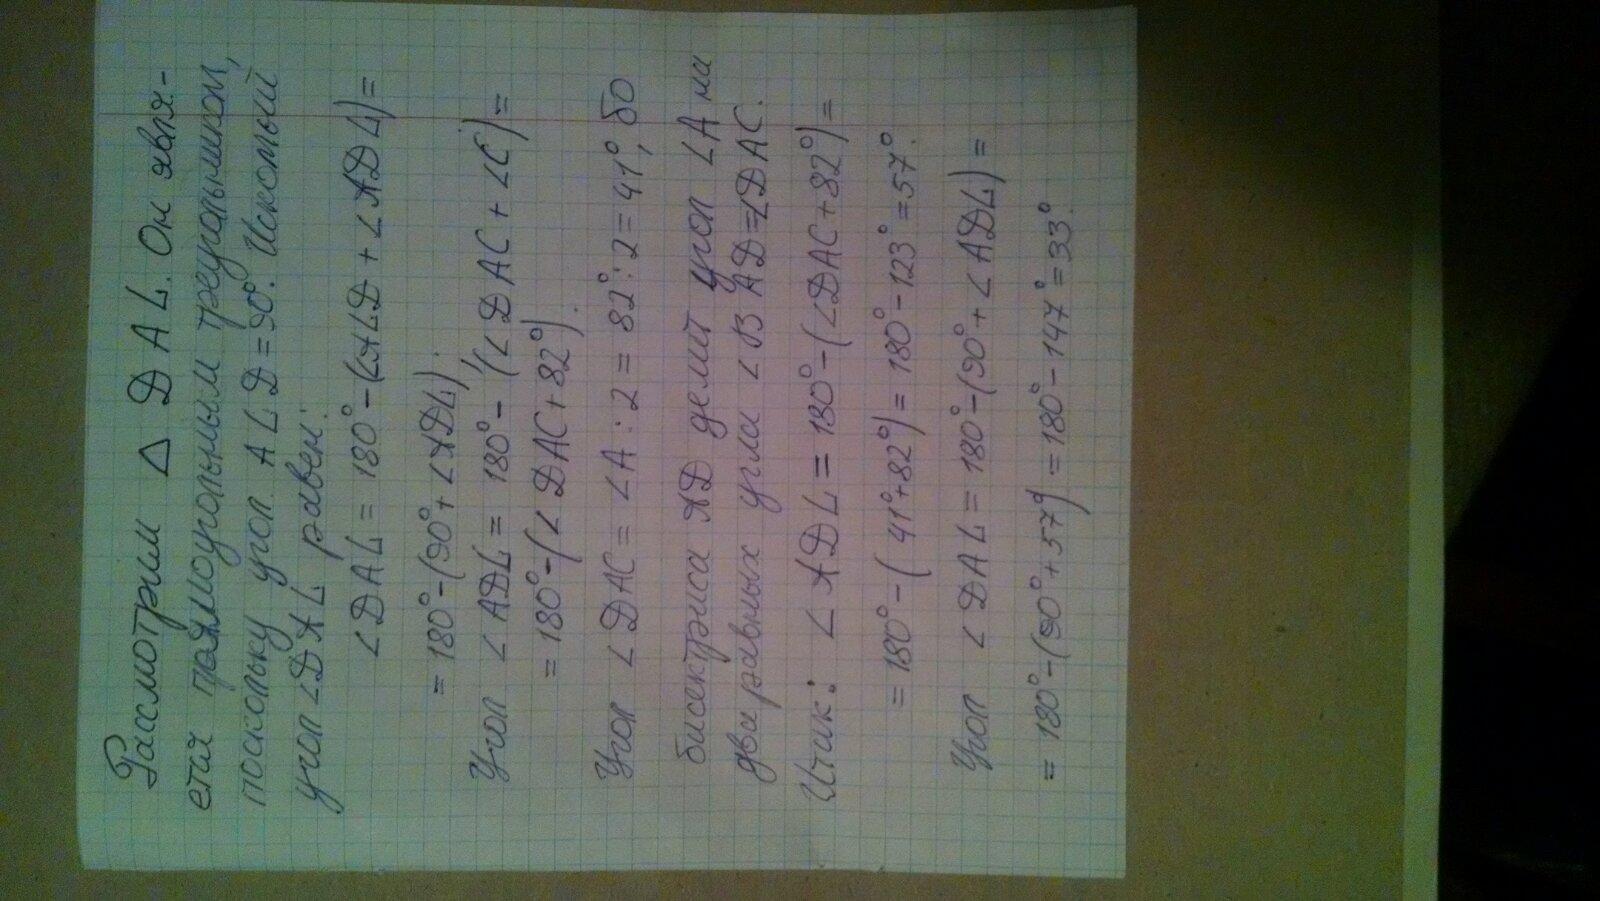 Рассмотрим △ DAL. Он явля-
ется прямоугольным треугольником,
поскольку угол ALD = 90°. Искомый
угол ∠DAL равен:
∠DAL = 180° - (∠ALD + ∠ADL) =
= 180° - (90° + ∠ADL).
Угол ∠ADL = 180° - (∠DAC + ∠C) =
= 180° - (∠DAC + 82°).
Угол ∠DAC = ∠A : 2 = 82° : 2 = 41°, бо
бисектриса AD делит угол ∠A на
два равных угла ∠BAD = ∠DAC.
Итак: ∠ADL = 180° - (∠DAC + 82°) =
= 180° - (41° + 82°) = 180° - 123° = 57°.
Угол ∠DAL = 180° - (90° + ∠ADL) =
= 180° - (90° + 57°) = 180° - 147° = 33°.